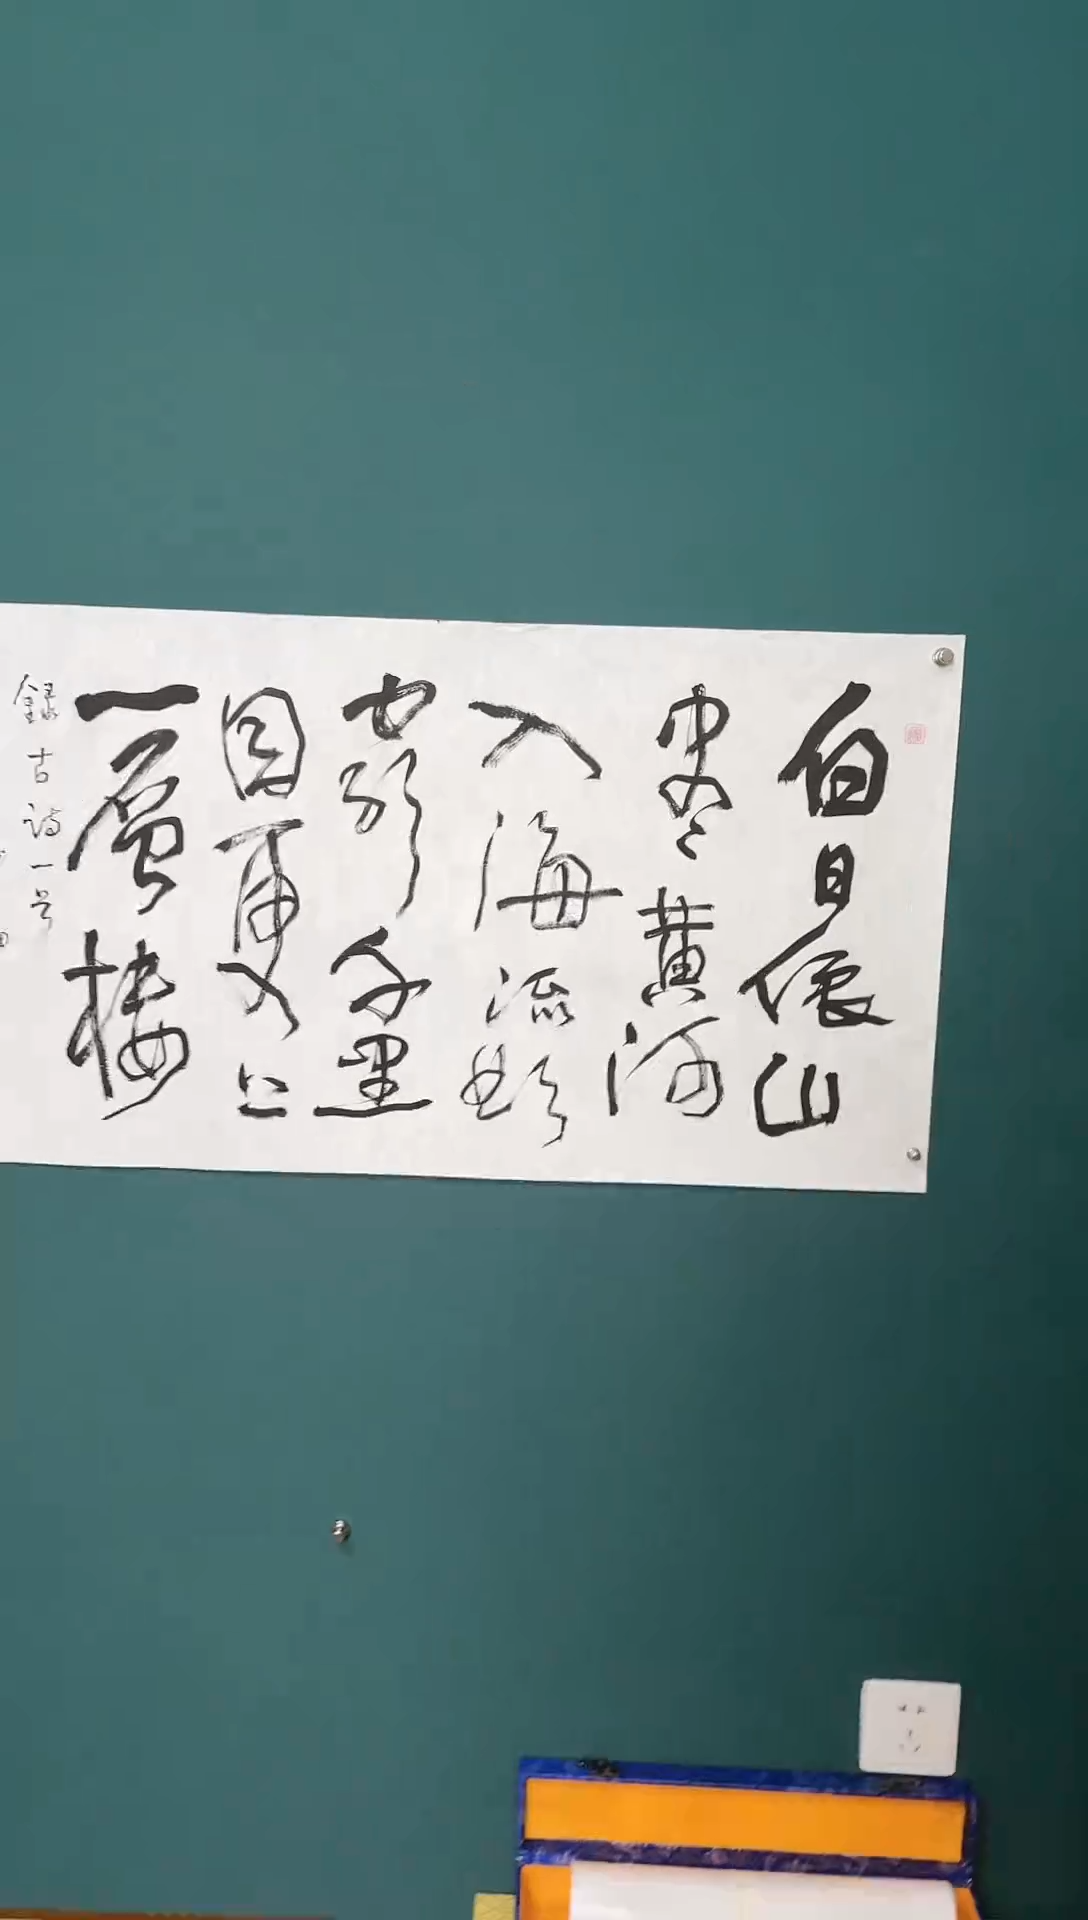 白日依山
尽黄河
入海流欲
穷千里
目更上
一层楼
録古诗一首